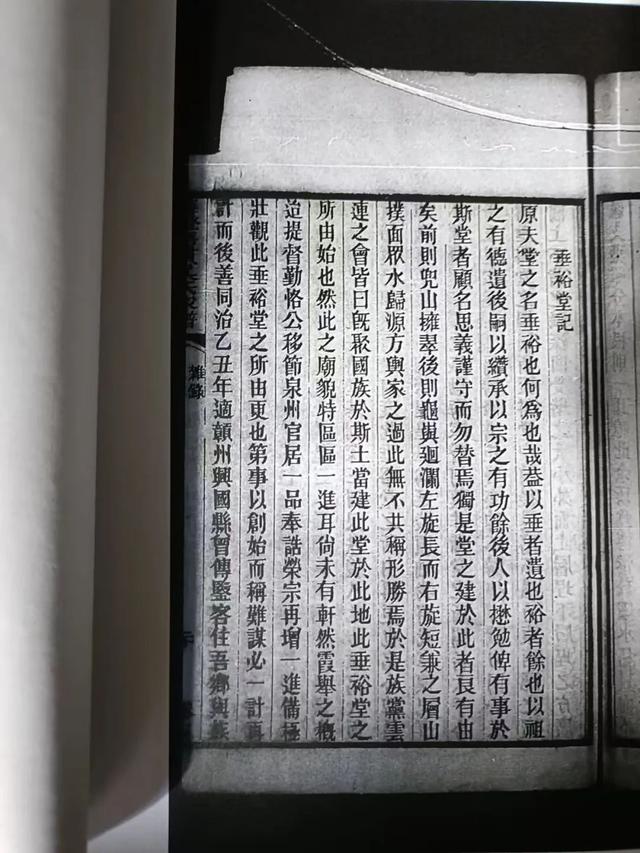 垂裕堂記
原夫堂之名垂裕也何為也哉葢以垂者遺也裕者餘也以祖
之有德遺後嗣以纘承以宗之有功餘後人以懋勉俾有事於
斯堂者顧名思義謹守而勿替焉獨是堂之建於此者良有由
矣前則兜山擁翠後則龜與迴瀾左旋長而右旋短兼之層山
撲面眾水歸源方輿家之過此無不共稱形勝焉於是族黨雲
連之會皆曰既聚國族於斯土當建此堂於此地此垂裕堂之
所由始也然此之廟貌特區區一進耳尚未有軒然霞舉之概
迨提督勤恪公移節泉州官居一品奉誥榮宗再增一進備極
壯觀此垂裕堂之所由更也第事以創始而稱難謀必一計再
計而後善同治乙丑年適贛州興國縣曾傳鑒客仕吾鄉與族
雜錄